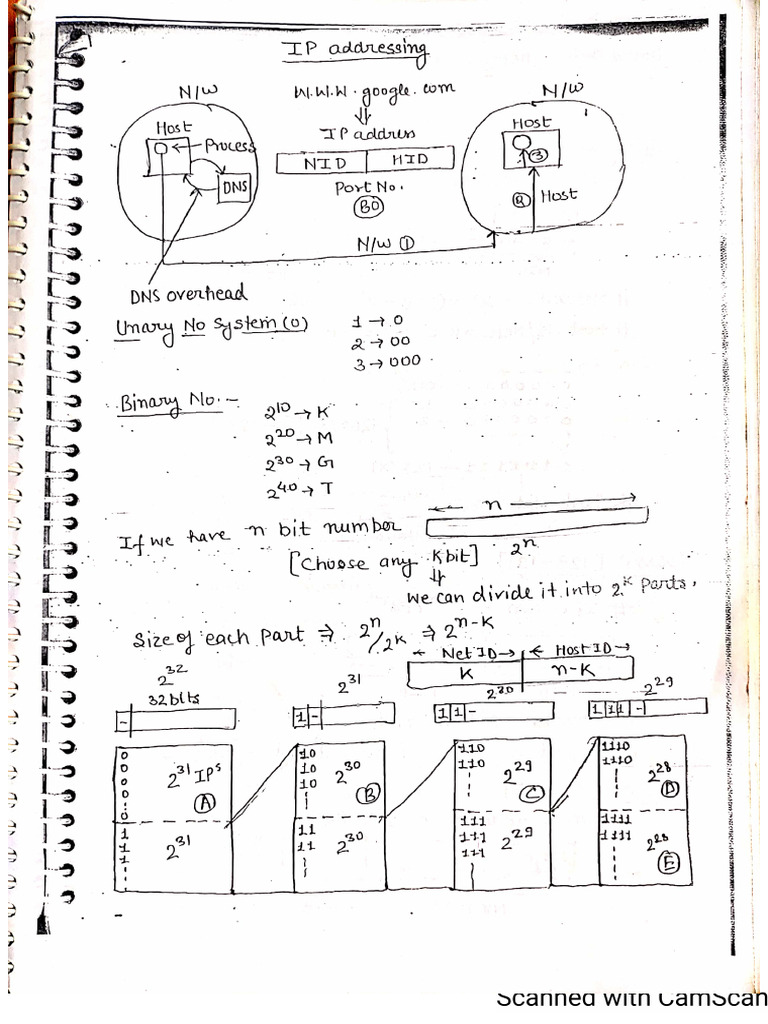 IP addressing
N/W
W.W.W.google.com
N/W
⇓
Host
Process
IP address
Host
NID HID
3
DNS
Port No.
80
2 Host
N/W 1
DNS overhead
Unary No System (0)
1 → 0
2 → 00
3 → 000
Binary No. -
2^10 → K
2^20 → M
2^30 → G
2^40 → T
If we have n bit number
← n →
2^n
[Choose any K bit]
⇓
we can divide it into 2^K Parts.
Size of each Part ⇒ 2^n/2^K ⇒ 2^n-K
← Net ID → ← Host ID →
K n-K
2^32 2^31 2^30 2^29
32 bits
- 1 - 1 1 - 1 1 1 -
0 10 110 1110
0 10 110 1110
0 10
0
0
2^31 IPs A 2^30 B 2^29 C 2^28 D
1 11 111 1111
1 11 111 1111
1 111
2^31 2^30 2^29 2^28 E
Scanned with CamScan